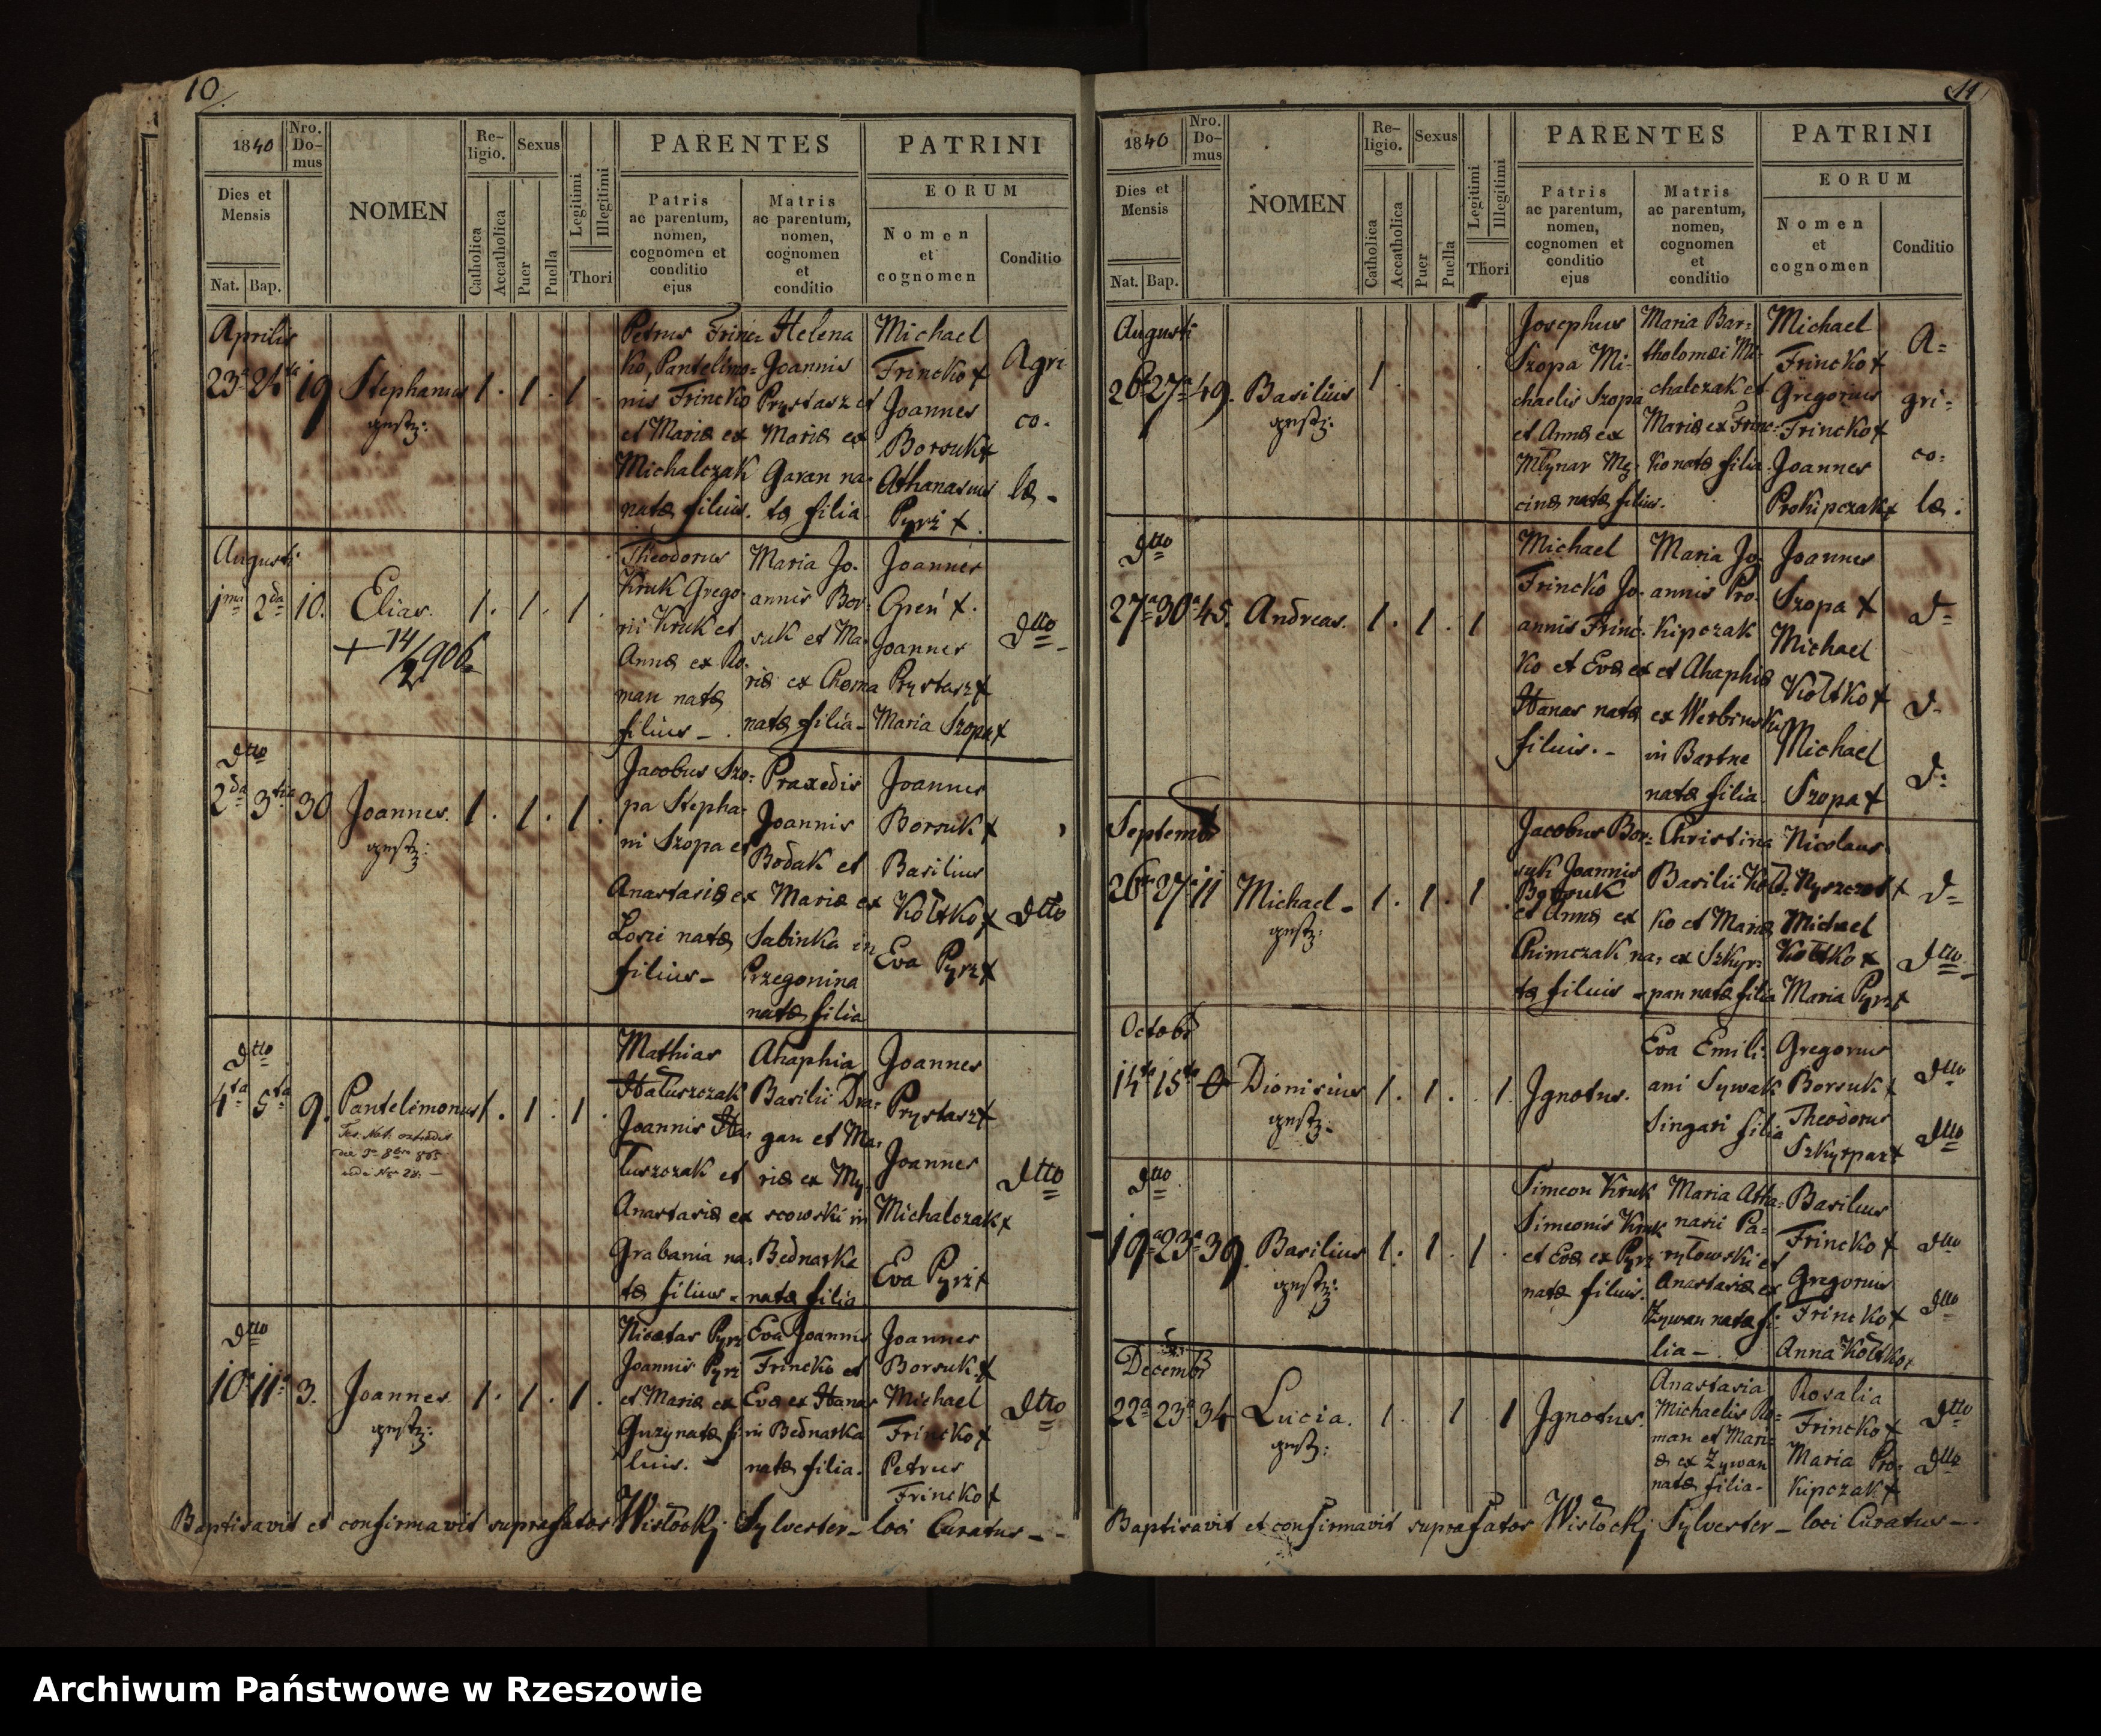 10
1840
Nro. Do- mus
NOMEN
Re- ligio.
Sexus
PARENTES
PATRINI
Dies et Mensis
Nat. Bap.
Catholica
Accatholica
Puer
Puella
Legitimi
Illegitimi
Thori
Patris ac parentum, nomen, cognomen et conditio ejus
Matris ac parentum, nomen, cognomen et conditio
EORUM
Nomen et cognomen
Conditio
Aprilis
23 24 19 Stephanus 1. 1. 1.
Petrus Frinc-
ko, Pantelimo-
nis Frincko
et Mariæ ex
Michalczak
natæ filius.
Helena
Joannis
Prystasz et
Mariæ ex
Garan na-
tæ filia
Michael
Frincko +
Joannes
Borsuk +
Athanasius
Pyrż +
Agri
co-
læ -
Augusti
1ma 2da 10. Elias. 1. 1. 1.
+ 14/2 906
Theodorus
Kruk Grego-
rii Kruk et
Annæ ex Ro-
man natæ
filius -
Maria Jo-
annis Bor-
suk et Ma-
riæ ex Choma
natæ filia -
Joannes
Greń +.
Joannes
Prystasz +
Maria Szopa +
Dtto
Dtto
2da 3tia 30 Joannes. 1. 1. 1.
Jacobus Szo-
pa Stepha-
ni Szopa et
Anastasiæ ex
Losie natæ
filius -
Praxedis
Joannis
Bodak et
Mariæ ex
Sabinka in
Przegonina
natæ filia
Joannes
Borsuk +
Basilius
Kołtko +
Eva Pyrz +
Dtto
Dtto
4ta 5ta 9. Pantelemonus 1. 1. 1.
Mathias
Hatuszczak
Joannis Ha-
tuszczak et
Anastasiæ ex
Grabania na-
tæ filius -
Ahaphia
Basilii Dra-
gan et Ma-
riæ ex My-
scowski in
Bednarka
natæ filia
Joannes
Prystasz +
Joannes
Michalczak +
Eva Pyrż +
Dtto
Dtto
10 11 3. Joannes. 1. 1. 1.
Nicetas Pyrz
Joannis Pyrz
et Mariæ ex
Guzy natæ fi-
lius. -
Eva Joannis
Frincko et
Evæ ex Hanas
in Bednarka
natæ filia.
Joannes
Borsuk +
Michael
Frincko +
Petrus
Frincko +
Dtto
Baptisavit et confirmavit suprafatus Wisłocki Sylvester - loci Curatus -
11
1840
Nro. Do- mus
NOMEN
Re- ligio.
Sexus
PARENTES
PATRINI
Dies et Mensis
Nat. Bap.
Catholica
Accatholica
Puer
Puella
Legitimi
Illegitimi
Thori
Patris ac parentum, nomen, cognomen et conditio ejus
Matris ac parentum, nomen, cognomen et conditio
EORUM
Nomen et cognomen
Conditio
Augusti
26 27 49. Basilius 1.
Josephus
Szopa Mi-
chaelis Szopa
et Annæ ex
Młynar
natæ filius.
Maria Bar-
tholomæi Mi-
chalczak et
Mariæ ex Frinc-
ko natæ filia
Michael
Frincko +
Gregorius
Frincko +
Joannes
Prokipczak +
A-
gri-
co-
læ.
Dtto
27 30 45. Andreas. 1. 1. 1
Michael
Frincko Jo-
annis Frinc-
ko et Evæ ex
Hanas natæ
filius. -
Maria Jo-
annis Pro-
kipczak
et Ahaphiæ
ex Werbinska
in Bartne
natæ filia.
Joannes
Szopa +
Michael
Kołtko +
Michael
Szopa +
D-
D-
D-
Septemb
26 27 11 Michael - 1. 1. 1.
Jacobus Bor-
suk Joannis
Borsuk
et Annæ ex
Chimczak na-
tæ filius -
Christina
Basilii Kołt-
ko et Mariæ
ex Szkyr-
pan natæ filia
Nicolaus
Michael
Kołtko +
Maria Pyrz +
D-
Dtto
Octob
14 15 0 Dionisius 1. 1. 1.
Ignotus.
Eva Emili-
ani Sywak
Singari filia
Gregorius
Borsuk +
Theodorus
Szkyrpan +
Dtto
Dtto
Dtto
19 23 39. Basilius 1. 1. 1.
Simeon Kruk
Simeonis Kruk
et Evæ ex Pyrz
natæ filius.
Maria Atha-
nasii Pa-
ryłowski et
Anastasiæ ex
Żywan natæ fi-
lia -
Basilius
Frincko +
Gregorius
Frincko +
Anna Kołtko +
Dtto
Dtto
Decemb
22 23 34 Lucia. 1. 1 1
Ignotus.
Anastasia
Michaelis Ro-
man et Mari-
æ ex Żywan
natæ filia -
Rosalia
Frincko +
Maria Pro-
kipczak +
Dtto
Dtto
Baptisavit et confirmavit suprafatus Wisłocki Sylvester - loci Curatus -
Archiwum Państwowe w Rzeszowie